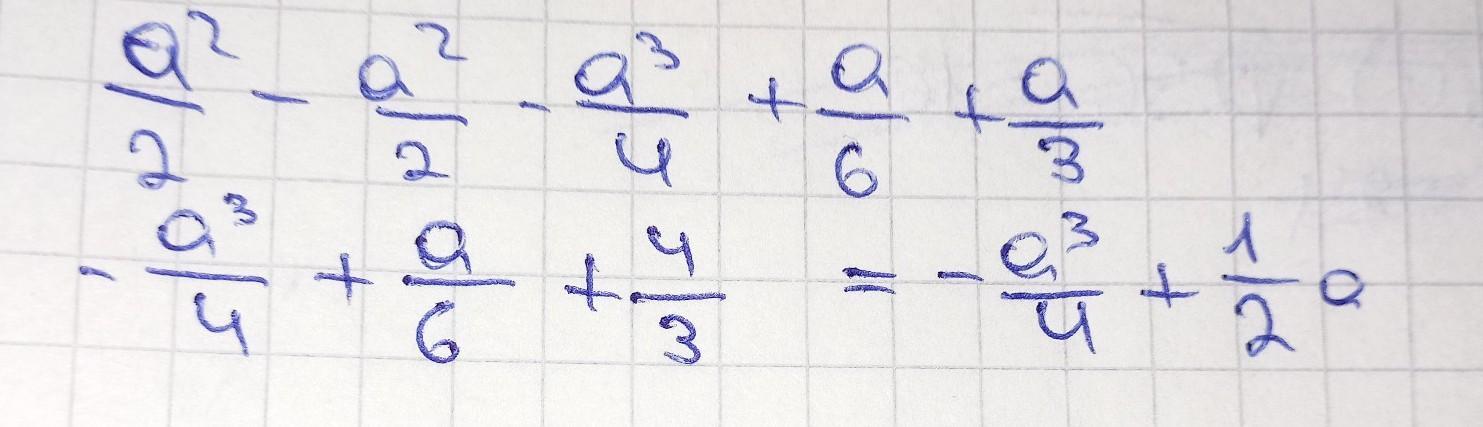 a²/2 - a²/2 - a³/4 + a/6 + a/3
- a³/4 + a/6 + 4/3 = - a³/4 + 1/2 a